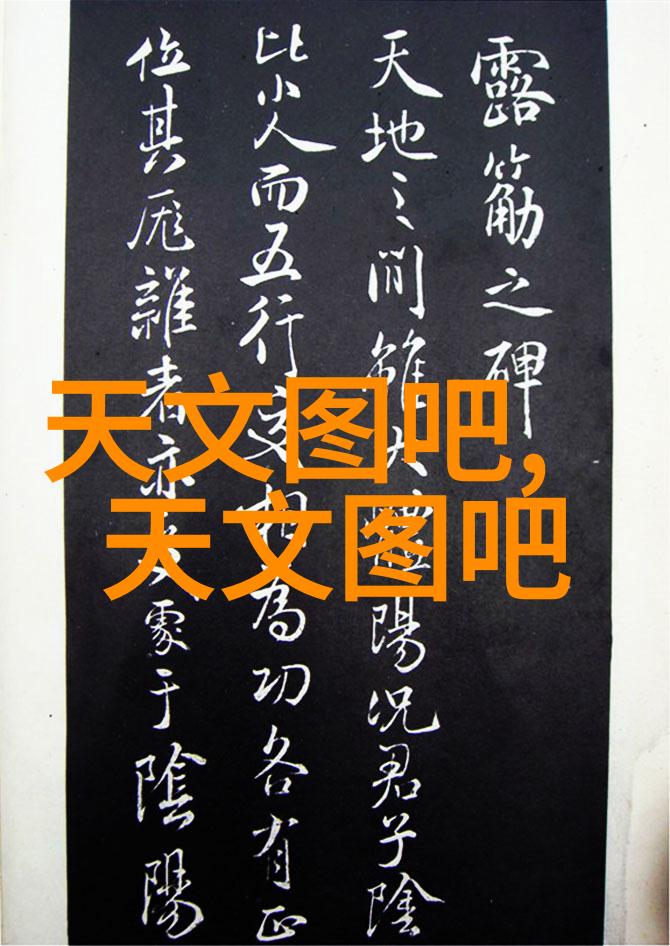 露筋之碑
天地之間雖大陽况君子陰
比小人而五行交相為功各有正
位其厖雜者亦于陰陽
天文图吧,
天文图吧